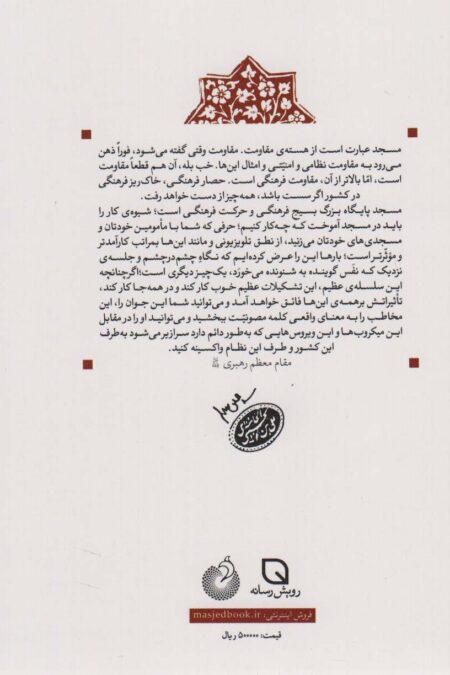 مسجد عبارت است از هسته‌ی مقاومت. مقاومت وقتی گفته می‌شود، فوراً ذهن
می‌رود به مقاومت نظامی و امنیّتی و امثال این‌ها. خب بله، آن هم قطعاً مقاومت
است، امّا بالاتر از آن، مقاومت فرهنگی است. حصار فرهنگی، خاک‌ریز فرهنگی
در کشور اگر سست باشد، همه‌چیز از دست خواهد رفت.
مسجد پایگاه بزرگ بسیج فرهنگی و حرکت فرهنگی است؛ شیوه‌ی کار را
باید در مسجد آموخت که چه‌کار کنیم؛ حرفی که شما با مأمومین خودتان و
مسجدی‌های خودتان می‌زنید، از نطق تلویزیونی و مانند این‌ها بمراتب کارآمدتر
و مؤثّرتر است؛ بارها این را عرض کرده‌ایم که نگاهِ چشم‌درچشم و جلسه‌ی
نزدیک که نفَس گوینده به شنونده می‌خورَد، یک‌چیز دیگری است؛ اگرچنانچه
این سلسله‌ی عظیم، این تشکیلات عظیم خوب کار کند و در همه‌جا کار کند،
تأثیراتش برهمه‌ی این‌ها فائق خواهد آمد و می‌توانید شما این جوان را، این
مخاطب را به معنای واقعی کلمه مصونیّت ببخشید و می‌توانید او را در مقابل
این میکروب‌ها و این ویروس‌هایی که به‌طور دائم دارد سرازیر می‌شود به‌طرف
این کشور و طرف این نظام واکسینه کنید.
مقام معظم رهبری
رویش رسانه
فروش اینترنتی: masjedbook.ir
قیمت: ۵۰۰۰۰۰ ریال